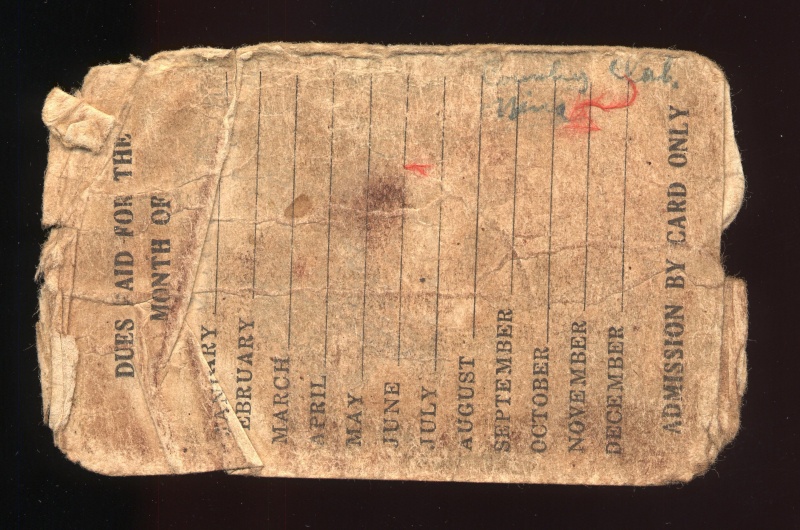 DUES AID FOR THE
MONTH OF
JANUARY
EBRUARY
MARCH
APRIL
MAY
JUNE
JULY
AUGUST
SEPTEMBER
OCTOBER
NOVEMBER
DECEMBER
ADMISSION BY CARD ONLY
Country Club